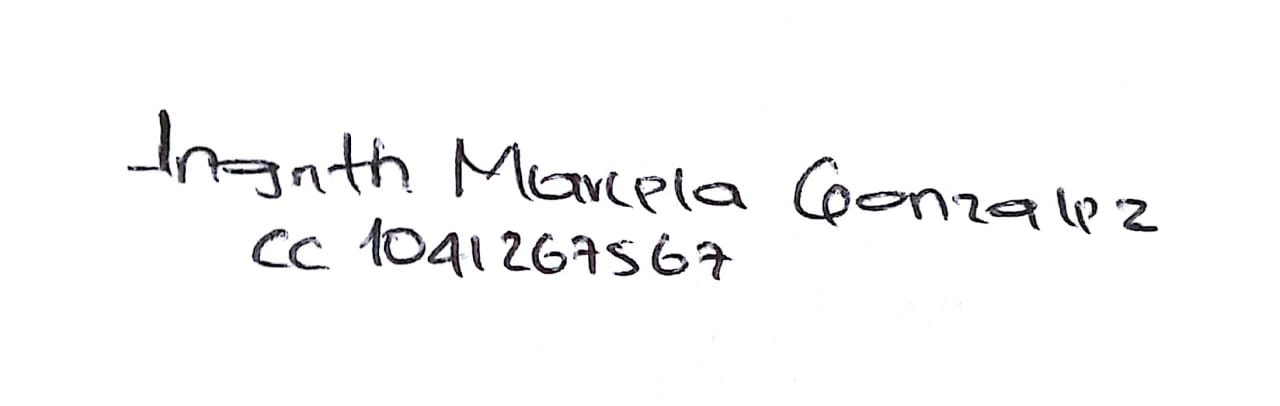 Ingrith Marcela Gonzalez
CC 1041267567